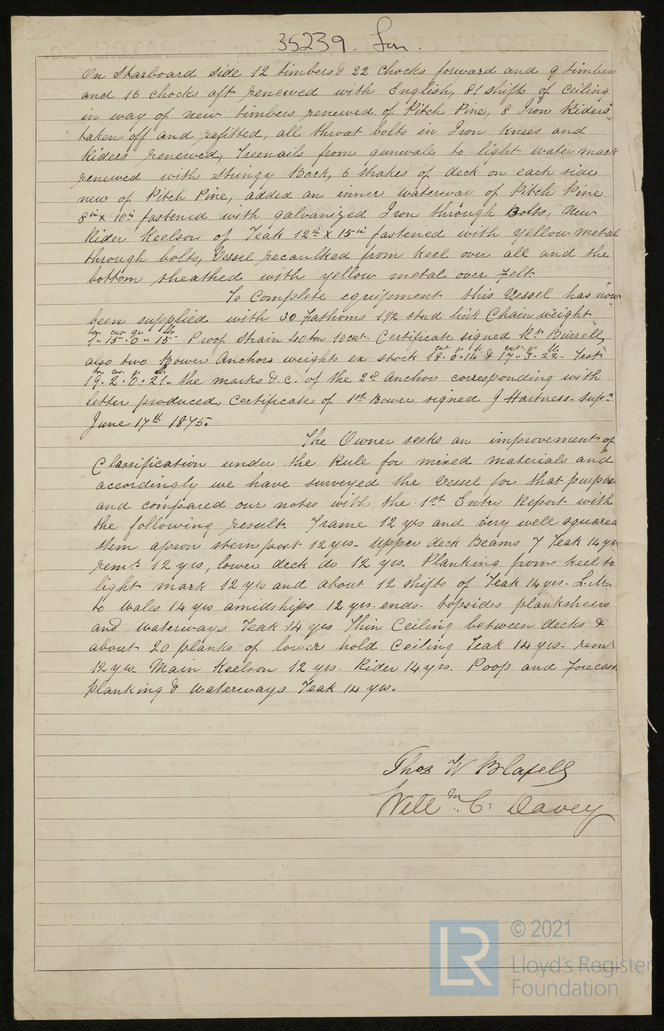 35239. Lon.
On Starboard side 12 timbers & 22 chocks forward and 9 timbers
and 16 chocks aft renewed with English, 81 shifts of Ceiling
in way of new timbers renewed of Pitch Pine, 8 Iron Riders
taken off and refitted, all throat bolts in Iron Knees and
Riders renewed, Treenails from gunwale to light water mark
renewed with Stringy Bark, 6 strakes of deck on each side
new of Pitch Pine, added an inner waterway of Pitch Pine
8in x 10in fastened with galvanized Iron through Bolts, New
Rider Keelson of Teak 12in x 15in fastened with yellow metal
through bolts, Vessel recaulked from keel over all and the
bottom sheathed with yellow metal over felt
To Complete equipment this Vessel has now
been supplied with 30 Fathoms 1 1/2 stud link Chain weight
ton cwt qr lb
2.. 15.. 0.. 15 Proof Strain 40 ton 10 cwt. Certificate signed Birrell,
also two Bower Anchors weights ex stock 18. 0. 14 & 17.. 3.. 22 - Test
ton cwt qr lb
19. 2. 0. 21 - the marks &c. of the 2d Anchor corresponding with
letter produced, Certificate of 1st Bower signed J Hartness - Supt
June 17th 1875.
The Owner seeks an improvement of
Classification under the Rule for mixed materials and
accordingly we have surveyed the Vessel for that purpose
and compared our notes with the 1st Entry Report with
the following result. Frame 12 yrs and very well squared
stem apron stern post 12 yrs - Upper deck Beams 7 Teak 14 yrs
remr 12 yrs, lower deck do 12 yrs. Planking from keel to
light mark 12 yrs and about 12 shifts of Teak 14 yrs - L.M.
to wales 14 yrs amidships 12 yrs ends - topsides planksheers
and waterways Teak 14 yrs Thin Ceiling between decks &
about 20 planks of lower hold Ceiling Teak 14 yrs - remr
12 yrs Main Keelson 12 yrs. Rider 14 yrs. Poop and forecastle
planking & waterways Teak 14 yrs.
Thos W Blaxell
Willm C. Davey
LR
© 2021
Lloyd's Register
Foundation